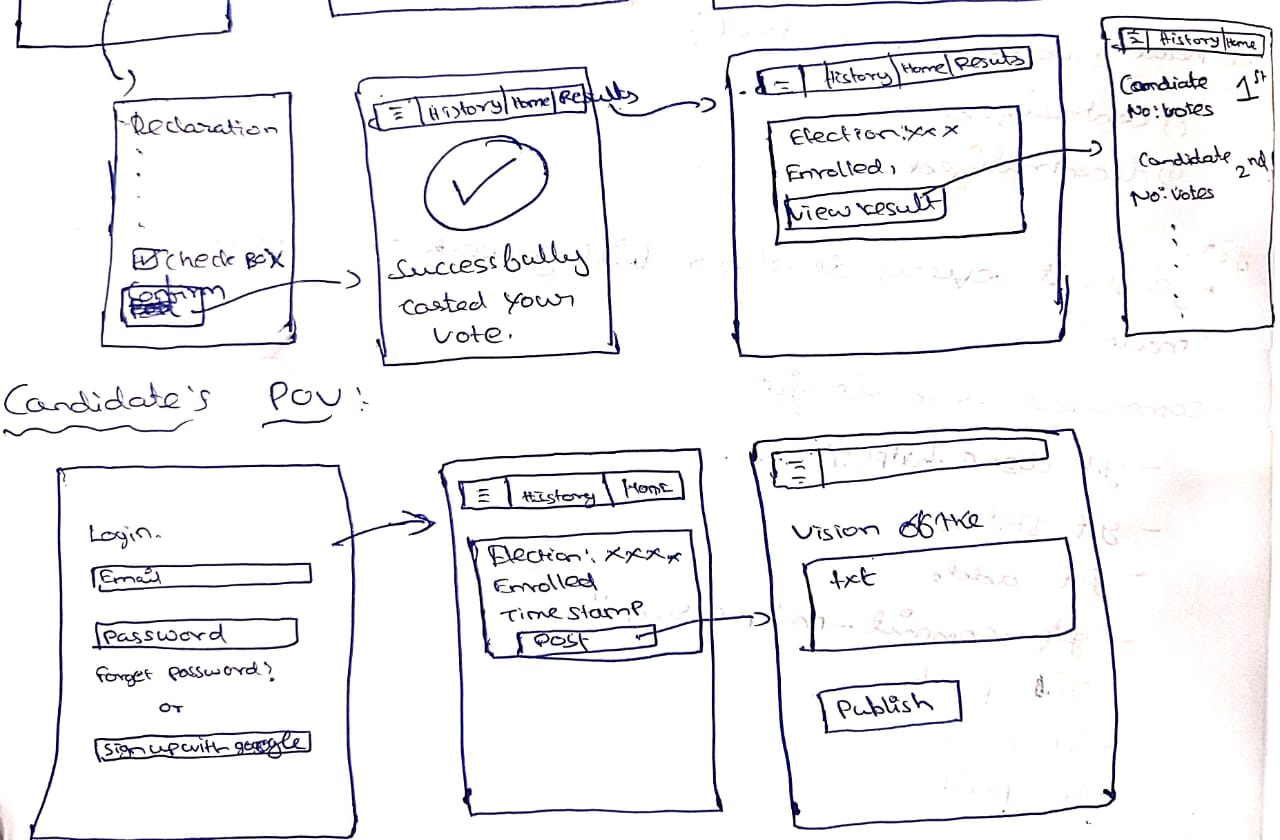 Declaration
Check Box
Confirm
☰ History Home Results
Successfully
casted your
vote.
☰ History Home Resuts
Election: xxx
Enrolled,
View result
☰ History Home
Candiate 1st
No: votes
Candidate 2nd
No: votes
Candidate's POV:
Login.
Email
Password
forget password?
or
Sign up with google
☰ History Home
Election: xxxx
Enrolled
Time stamp
Post
☰
Vision of the
txt
Publish